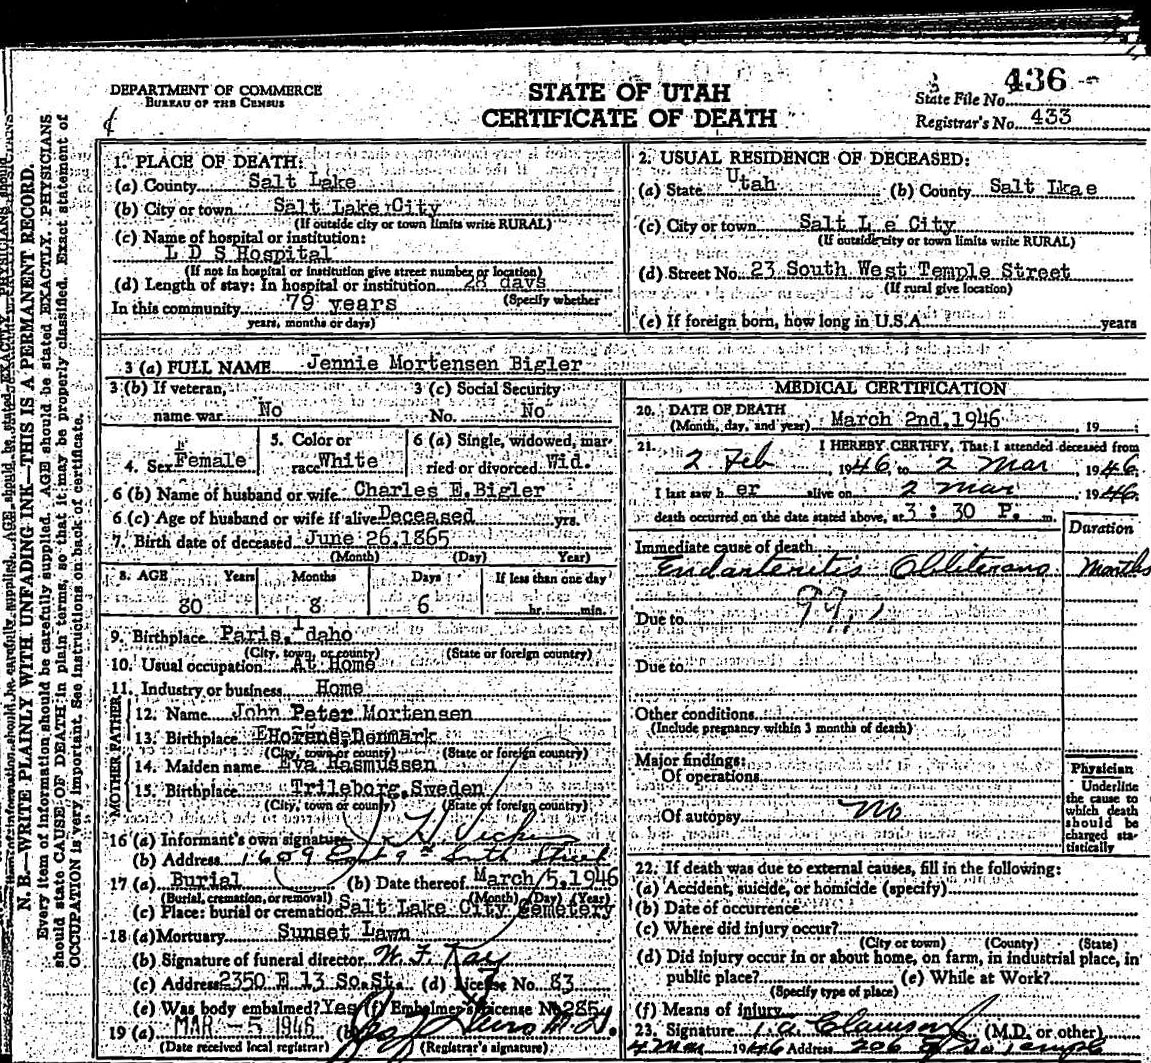 DEPARTMENT OF COMMERCE
BUREAU OF THE CENSUS
STATE OF UTAH
CERTIFICATE OF DEATH
State File No. 436
Registrar's No. 433
N. B.—WRITE PLAINLY WITH UNFADING INK—THIS IS A PERMANENT RECORD.
Every item of information should be carefully supplied. AGE should be stated EXACTLY. PHYSICIANS
should state CAUSE OF DEATH in plain terms, so that it may be properly classified. Exact statement of
OCCUPATION is very important. See instructions on back of certificate.
1. PLACE OF DEATH:
(a) County Salt Lake
(b) City or town Salt Lake City
(If outside city or town limits write RURAL)
(c) Name of hospital or institution:
L D S Hospital
(If not in hospital or institution give street number or location)
(d) Length of stay: In hospital or institution 28 days
(Specify whether
In this community 79 years
years, months or days)
2. USUAL RESIDENCE OF DECEASED:
(a) State Utah (b) County Salt Lkae
(c) City or town Salt L e City
(If outside city or town limits write RURAL)
(d) Street No. 23 South West Temple Street
(If rural give location)
(e) If foreign born, how long in U.S.A. years
3 (a) FULL NAME Jennie Mortensen Bigler
3 (b) If veteran, name war No
3 (c) Social Security No. No
4. Sex Female
5. Color or race White
6 (a) Single, widowed, married or divorced Wid.
6 (b) Name of husband or wife Charles E. Bigler
6 (c) Age of husband or wife if alive Deceased yrs.
7. Birth date of deceased June 26, 1865
(Month) (Day) Year)
8. AGE Years Months Days If less than one day
80 8 6 hr. min.
9. Birthplace Paris, Idaho
(City, town, or county) (State or foreign country)
10. Usual occupation At Home
11. Industry or business Home
FATHER
12. Name John Peter Mortensen
13. Birthplace EHorens, Denmark
(City, town or county) (State or foreign country)
MOTHER
14. Maiden name Eva Rasmussen
15. Birthplace Trileborg, Sweden
(City, town or county) (State of foreign country)
16 (a) Informant's own signature
(b) Address 1609 East 9th South Street
17 (a) Burial (b) Date thereof March 5, 1946
(Burial, cremation, or removal) (Month) (Day) (Year)
(c) Place: burial or cremation Salt Lake City Cemetery
18 (a) Mortuary Sunset Lawn
(b) Signature of funeral director W. F.
(c) Address 2350 E 13 So. St. (d) License No. 83
(e) Was body embalmed? Yes (f) Embalmer's License No. 285
19 (a) MAR -5 1946 (b) M.D.
(Date received local registrar) (Registrar's signature)
MEDICAL CERTIFICATION
20. DATE OF DEATH
(Month, day, and year) March 2nd, 1946, 19
21. I HEREBY CERTIFY, That I attended deceased from
2 Feb, 1946, to 2 Mar, 1946.
I last saw h er alive on 2 Mar, 1946.
death occurred on the date stated above, at 3:30 P. m.
Duration
Immediate cause of death
Endarteritis Obliterans Months
99,
Due to
Due to
Other conditions
(Include pregnancy within 3 months of death)
Major findings:
Of operations
Of autopsy No
Physician
Underline
the cause to
which death
should be
charged sta-
tistically
22. If death was due to external causes, fill in the following:
(a) Accident, suicide, or homicide (specify)
(b) Date of occurrence
(c) Where did injury occur?
(City or town) (County) (State)
(d) Did injury occur in or about home, on farm, in industrial place, in
public place? (e) While at Work?
(Specify type of place)
(f) Means of injury
23. Signature Clawson (M.D. or other)
4 Mar 1946 Address 206 Temple